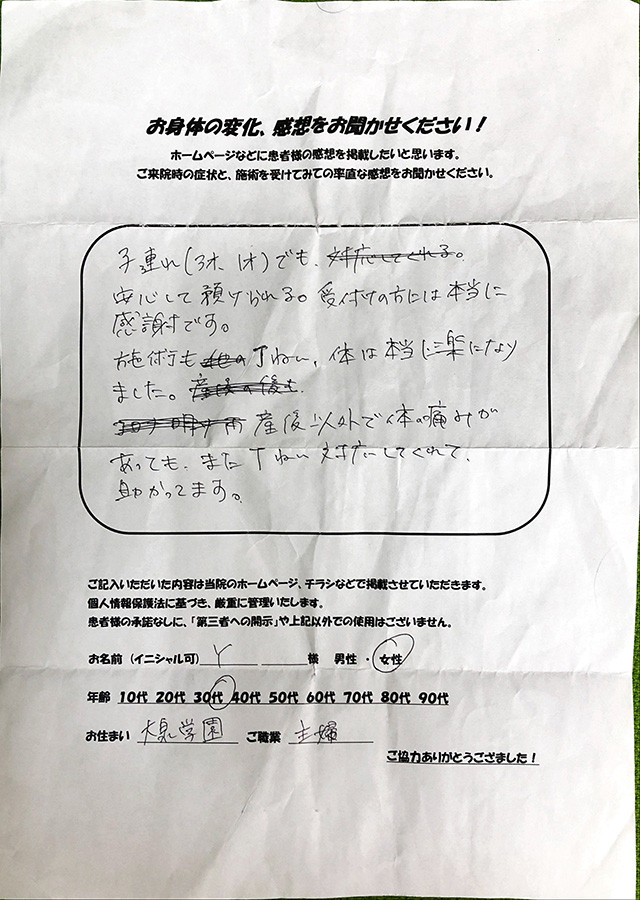 お身体の変化、感想をお聞かせください！
ホームページなどに患者様の感想を掲載したいと思います。
ご来院時の症状と、施術を受けてみての率直な感想をお聞かせください。
子連れ(3才、1才)でも、対応してくれる。
安心して預けられる。受付けの方には本当に
感謝です。
施術も丁ねい、体は本当に楽になり
ました。産後の後も
産後以外で体の痛みが
あっても、また丁ねい対応してくれて、
助かってます。
ご記入いただいた内容は当院のホームページ、チラシなどで掲載させていただきます。
個人情報保護法に基づき、厳重に管理いたします。
患者様の承諾なしに、「第三者への開示」や上記以外での使用はございません。
お名前（イニシャル可） Y 様 男性・女性
年齢 10代 20代 30代 40代 50代 60代 70代 80代 90代
お住まい 大泉学園 ご職業 主婦
ご協力ありがとうござました！